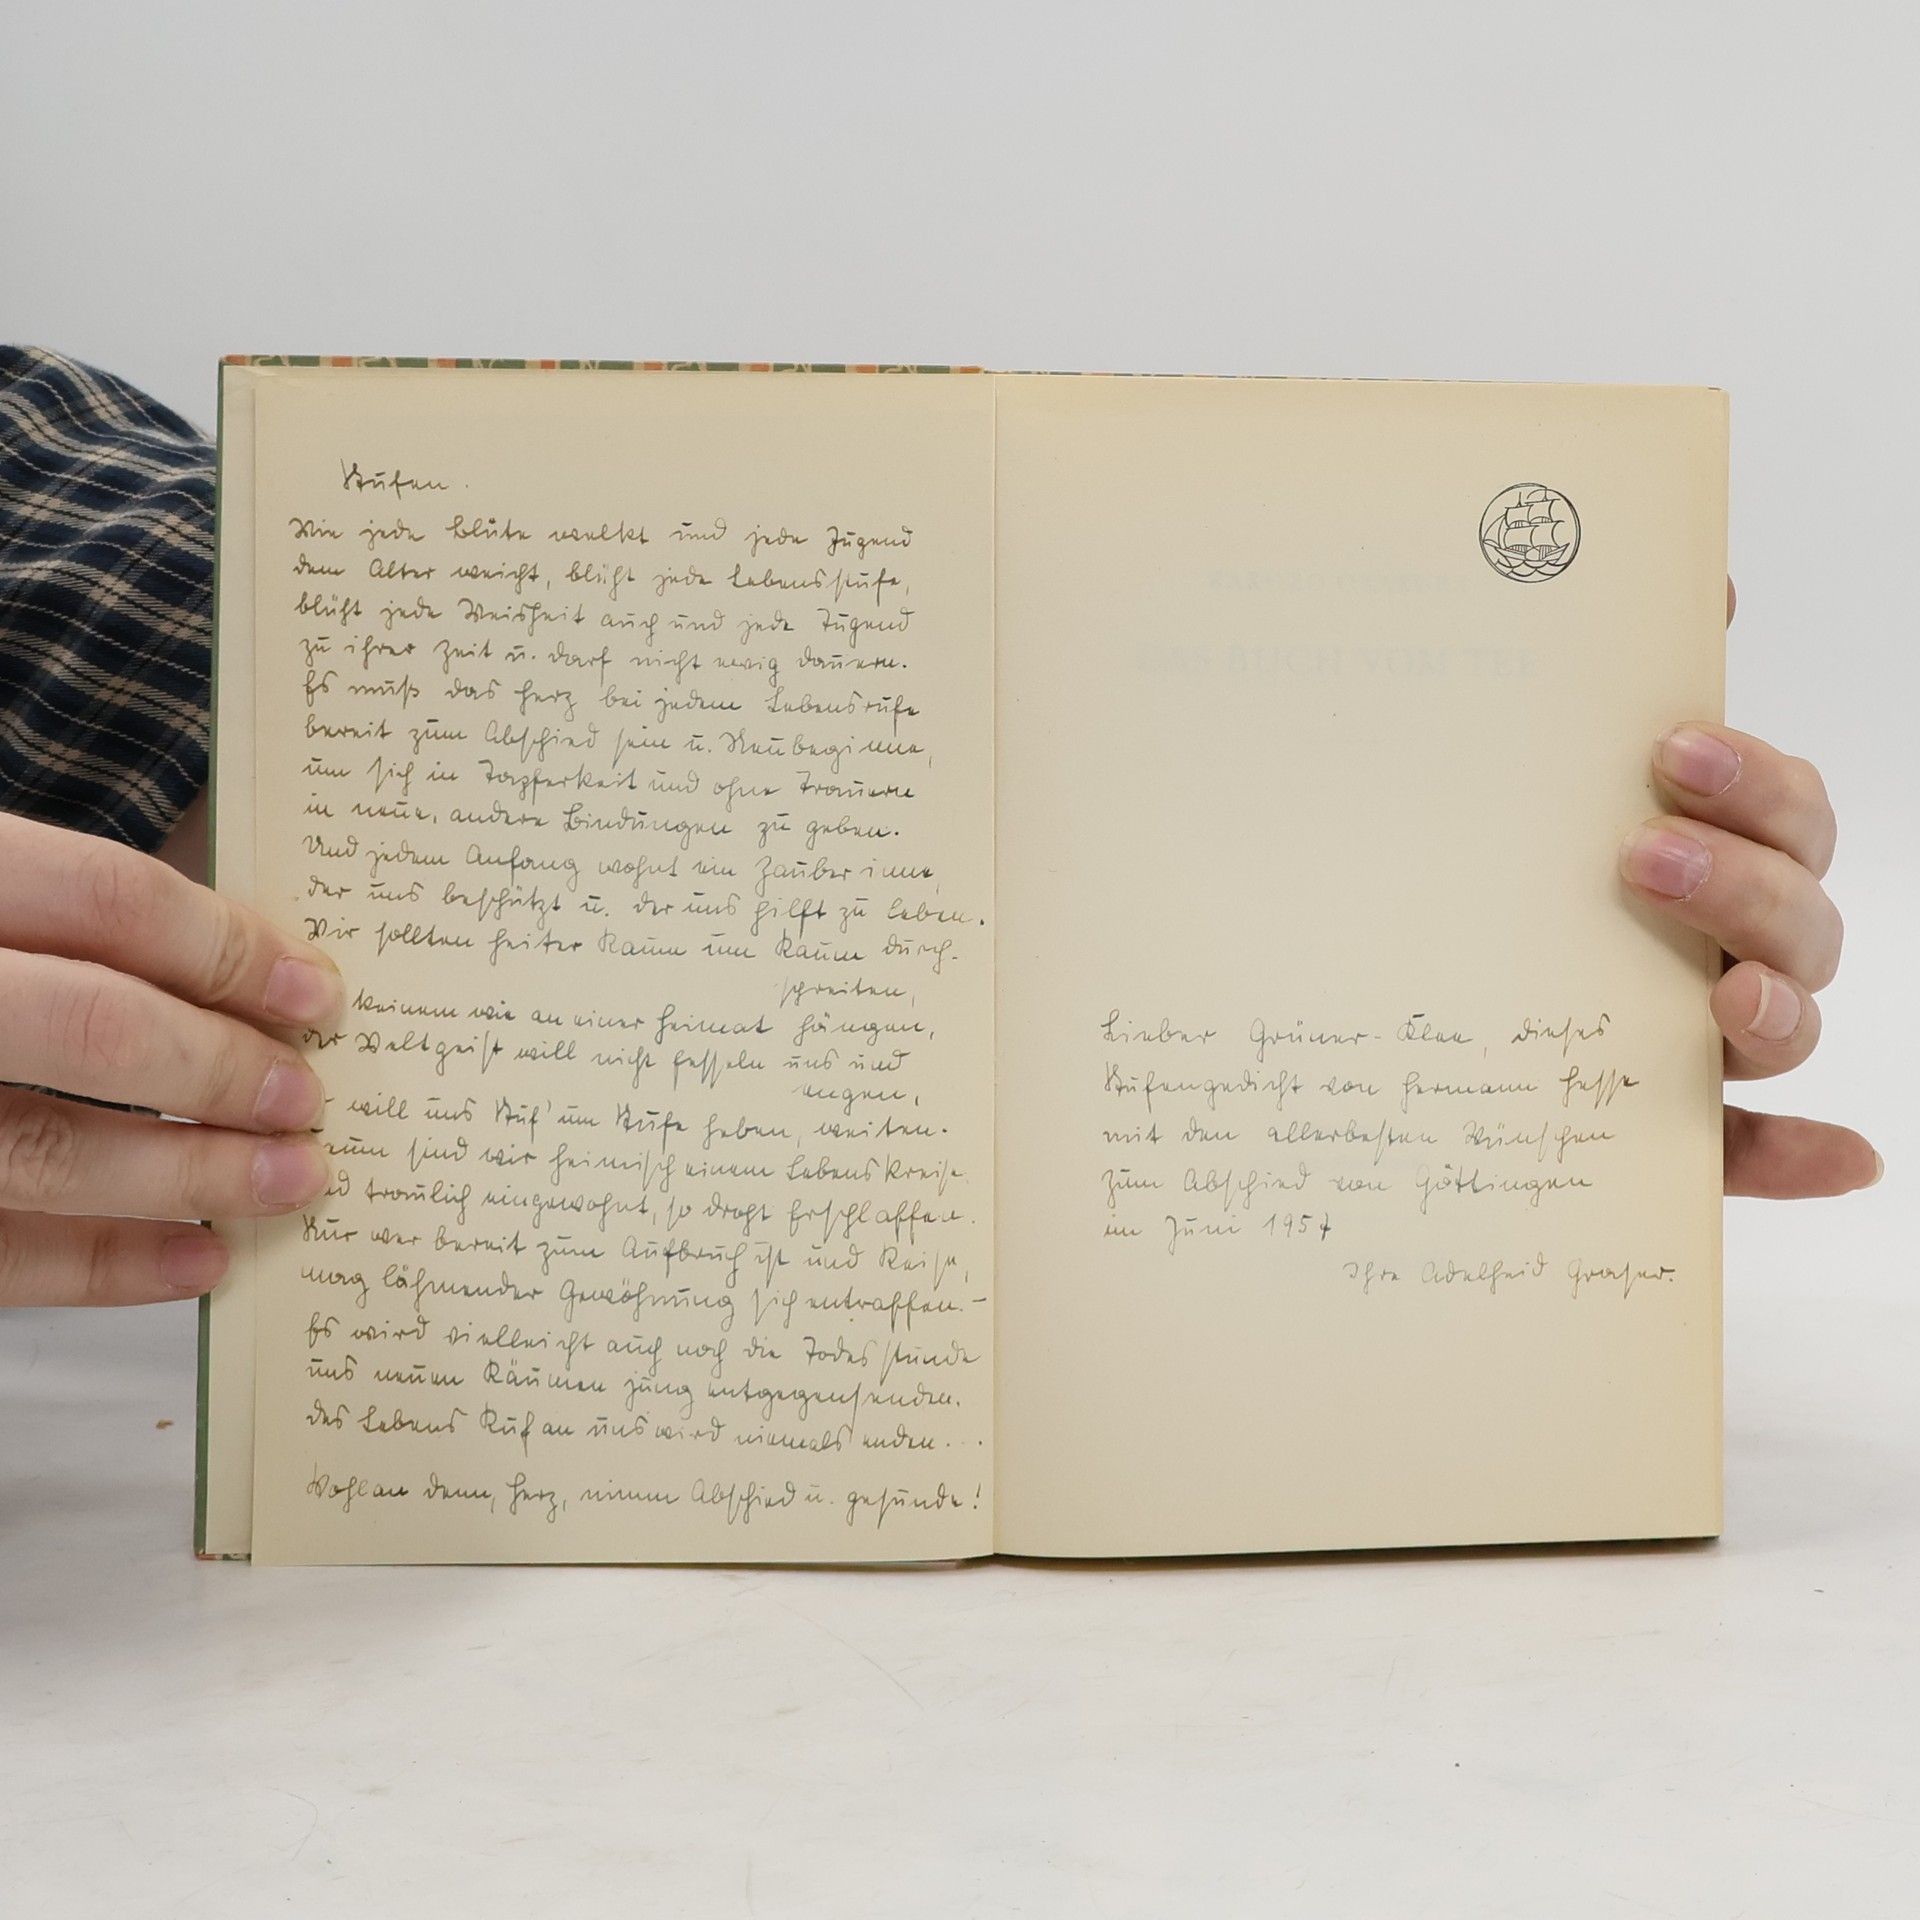 Stufen.
Wie jede Blüte welkt und jede Jugend
dem Alter weicht, blüht jede Lebensstufe,
blüht jede Weisheit auch und jede Tugend
zu ihrer Zeit u. darf nicht ewig dauern.
Es muß das Herz bei jedem Lebensrufe
bereit zum Abschied sein u. Neubeginne,
um sich in Tapferkeit und ohne Trauern
in neue, andere Bindungen zu geben.
Und jedem Anfang wohnt ein Zauber inne,
der uns beschützt u. der uns hilft zu leben.
Wir sollten heiter Raum um Raum durch-
schreiten,
keinem wie an einer Heimat hängen,
der Weltgeist will nicht fesseln uns und
engen,
will uns Stuf' um Stufe heben, weiten.
sind wir heimisch einem Lebenskreise
traulich eingewohnt, so droht Erschlaffen.
Nur wer bereit zum Aufbruch ist und Reise,
mag lähmender Gewöhnung sich entraffen.-
Es wird vielleicht auch noch die Todesstunde
uns neuen Räumen jung entgegensenden.
des Lebens Ruf an uns wird niemals enden...
Wohlan denn, Herz, nimm Abschied u. gesunde!
Lieber Grüner-Klee, dieses
Stufengedicht von Hermann Hesse
mit den allerbesten Wünschen
zum Abschied von Göttingen
im Juni 1957
Ihre Adelheid Graser.